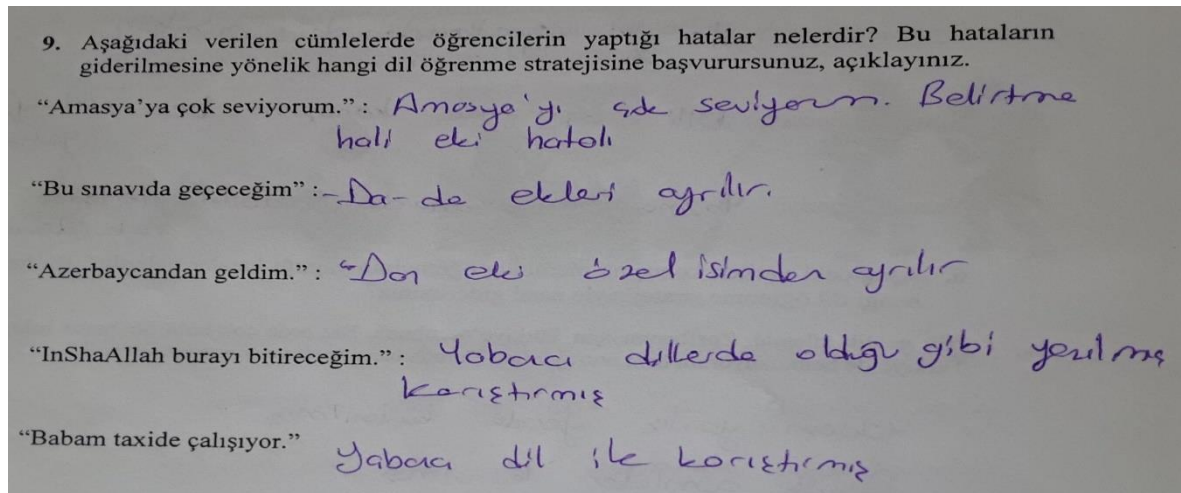 9. Aşağıdaki verilen cümlelerde öğrencilerin yaptığı hatalar nelerdir? Bu hataların
giderilmesine yönelik hangi dil öğrenme stratejisine başvurursunuz, açıklayınız.
“Amasya’ya çok seviyorum.” : Amasya'yı çok seviyorum. Belirtme
hali eki hatalı
“Bu sınavıda geçeceğim” :-Da-de ekleri ayrılır.
“Azerbaycandan geldim.” : “Dan eki özel isimden ayrılır
“InShaAllah burayı bitireceğim.” : Yabancı dillerde olduğu gibi yazılmış
karıştırmış
“Babam taxide çalışıyor.”
Yabancı dil ile karıştırmış